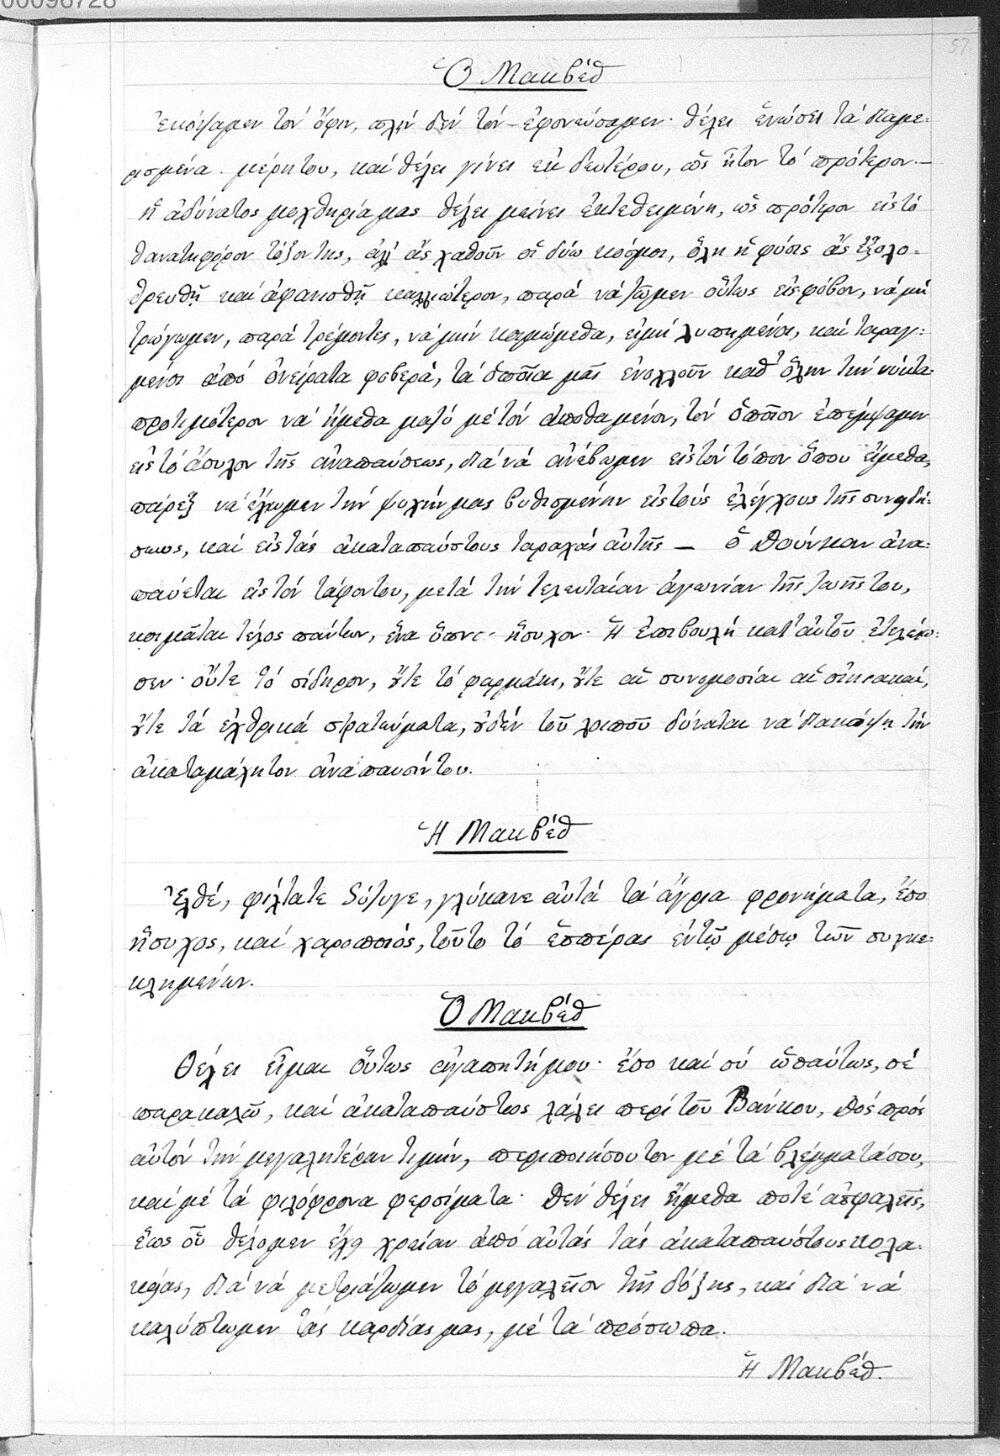 00096728
57
Ὁ Μακβέθ
Ἐκόψαμεν τόν ὄφιν, πλήν δέν τόν ἐφονεύσαμεν· θέλει ἑνώσει τά διαμε-
ρισμένα μέρητου, καί θέλει γίνει ἐκ δευτέρου, ὡς ἦτον τό πρότερον.—
ἡ ἀδύνατος μοχθηρία μας θέλει μείνει ἐκτεθειμένη, ὡς πρότερον εἰς τό
θανατηφόρον τόξον της, ἀλλ' ἄς χαθοῦν οἱ δύω κόσμοι, ὅλη ἡ φύσις ἄς ἐξολο-
θρευθῇ καί ἀφανισθῇ καλλιώτερον, παρά νά ζῶμεν οὕτως εἰς φόβον, νά μή
τρώγωμεν, παρά τρέμοντες, νά μήν κοιμώμεθα, εἰμή λυπημένοι, καί ταραγ-
μένοι ἀπό ὀνείρατα φοβερά, τά ὁποῖα μᾶς ἐνοχλοῦν καθ' ὅλην τήν νύκτα·
προτιμότερον νά ἤμεθα μαζύ μέ τόν ἀποθαμένον, τόν ὁποῖον ἐπέμψαμεν
εἰς τό ἄσυλον τῆς ἀναπαύσεως, διά νά ἀνέβωμεν εἰς τόν τόπον ὅπου εἴμεθα,
πάρεξ νά ἔχωμεν τήν ψυχήν μας βυθισμένην εἰς τούς ἐλέγχους τῆς συνειδή-
σεως, καί εἰς τάς ἀκαταπαύστους ταραχάς αὐτῆς — ὁ Δούνκαν ἀνα-
παύεται εἰς τόν τάφοντου, μετά τήν τελευταίαν ἀγωνίαν τῆς ζωῆς του,
κοιμᾶται τέλος πάντων, ἕνα ὕπνον ἥσυχον· Ἡ ἐπιβουλή κατ' αὐτοῦ ἐτελείω-
σεν· οὔτε τό σίδηρον, οὔτε τό φαρμάκι, οὔτε αἱ συνομοσίαι αἱ οἰκιακαί,
οὔτε τά ἐχθρικά στρατεύματα, οὐδέν τοῦ λοιποῦ δύναται νά διακόψῃ τήν
ἀκαταμάχητον ἀνάπαυσίντου.
Ἡ Μακβέθ
Ἐλθέ, φίλτατε σύζυγε, γλύκανε αὐτά τά ἄγρια φρονήματα, ἔσο
ἥσυχος, καί χαροποιός, τοῦτο τό ἑσπέρας ἐν τῷ μέσῳ τῶν συγκε-
κλημένων.
Ὁ Μακβέθ
Θέλει εἶμαι οὕτως ἀγαπητήμου· ἔσο καί σύ ὡσαύτως, σέ
παρακαλῶ, καί ἀκαταπαύστως λάλει περί τοῦ Βάνκου, δός πρός
αὐτόν τήν μεγαλητέραν τιμήν, περιποιήσου τον μέ τά βλέμματάσου,
καί μέ τά φιλόφρονα φερσίματα· Δέν θέλει ἤμεθα ποτέ ἀσφαλεῖς,
ἕως οὗ θέλομεν ἔχῃ χρείαν ἀπό αὐτάς τάς ἀκαταπαύστους κολα-
κείας, διά νά μετριάζωμεν τό μεγαλεῖον τῆς δόξης, καί διά νά
καλύπτωμεν τάς καρδίας μας, μέ τά πρόσωπα.
Ἡ Μακβέθ.